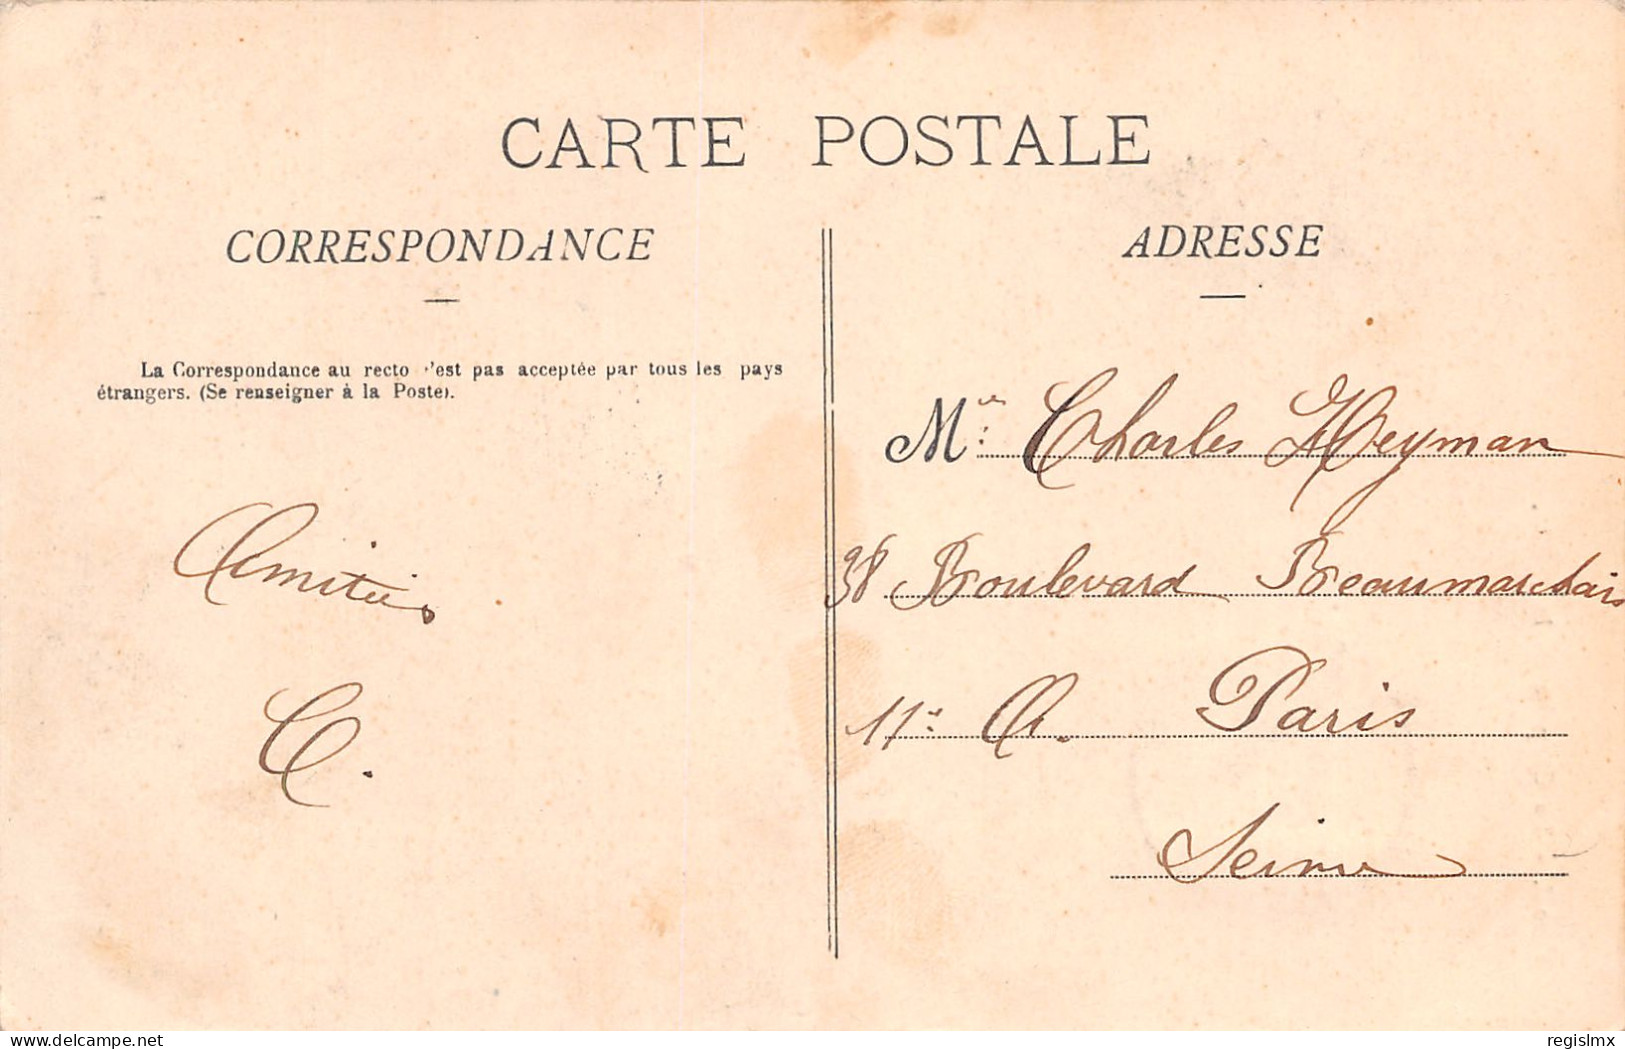 CARTE POSTALE
CORRESPONDANCE
La Correspondance au recto n'est pas acceptée par tous les pays
étrangers. (Se renseigner à la Poste).
Amitiés
C.
ADRESSE
Mr: Charles Heyman
38 Boulevard Beaumarchais
11e A. Paris
Seine
delcampe.net
regislmx